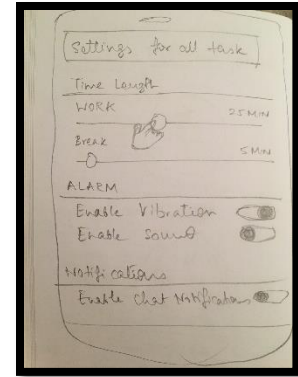 Settings for all task
Time Length
WORK
25 MIN
Break
5 MIN
ALARM
Enable Vibration
Enable Sound
Notifications
Enable Chat Notifications